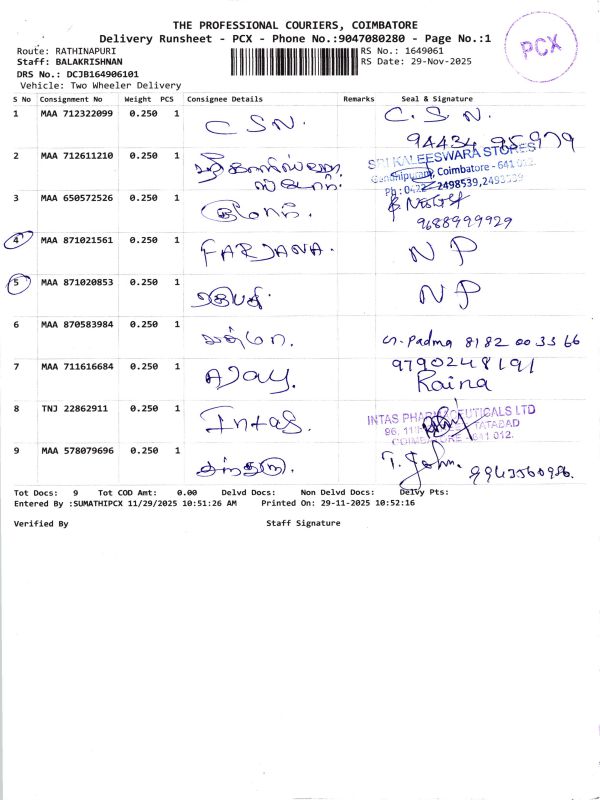 THE PROFESSIONAL COURIERS, COIMBATORE
Delivery Runsheet - PCX - Phone No.:9047080280 - Page No.:1
PCX
Route: RATHINAPURI
RS No.: 1649061
Staff: BALAKRISHNAN
RS Date: 29-Nov-2025
DRS No.: DCJB164906101
Vehicle: Two Wheeler Delivery
S No Consignment No Weight PCS Consignee Details Remarks Seal & Signature
1 MAA 712322099 0.250 1 CSN. C. S. N.
94434 95979
2 MAA 712611210 0.250 1
SRI KALEESWARA STORES
Gandhipuram, Coimbatore - 641 012.
Ph : 0422 2498539,
3 MAA 650572526 0.250 1
9688999929
4 MAA 871021561 0.250 1 FARJANA. NP
5 MAA 871020853 0.250 1 NP
6 MAA 870583984 0.250 1 Padma 8182 00 33 66
7 MAA 711616684 0.250 1 AJay. 9790248191
Raina
8 TNJ 22862911 0.250 1 Intas.
INTAS PHARMACEUTICALS LTD
96, TATABAD
COIMBATORE - 641 012.
9 MAA 578079696 0.250 1 T. John. 9943560986.
Tot Docs: 9 Tot COD Amt: 0.00 Delvd Docs: Non Delvd Docs: Delvy Pts:
Entered By :SUMATHIPCX 11/29/2025 10:51:26 AM Printed On: 29-11-2025 10:52:16
Verified By Staff Signature